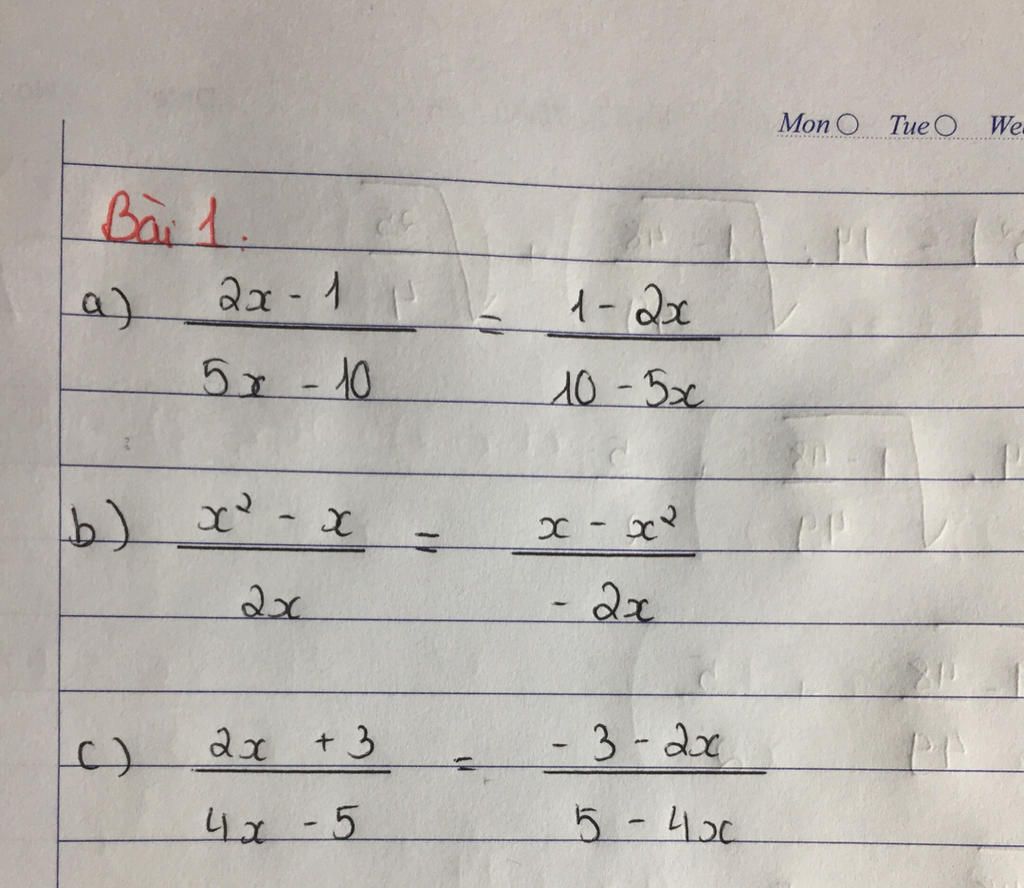 Mon Tue
Bài 1.
a) (2x - 1)/(5x - 10) = (1 - 2x)/(10 - 5x)
b) (x² - x)/(2x) = (x - x²)/(- 2x)
c) (2x + 3)/(4x - 5) = (- 3 - 2x)/(5 - 4x)